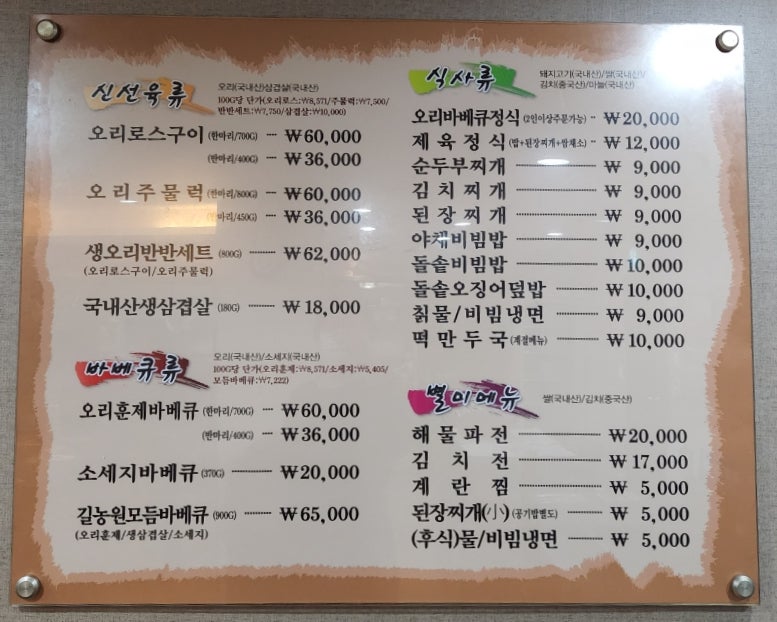 신선육류
오리(국내산)삼겹살(국내산)
100G당 단가(오리로스:₩8,571/주물럭:₩7,500/
반반세트:₩7,750/삼겹살:₩10,000)
오리로스구이 (한마리/700G) ₩60,000
(반마리/400G) ₩36,000
오리주물럭 (한마리/800G) ₩60,000
(반마리/450G) ₩36,000
생오리반반세트 (800G) ₩62,000
(오리로스구이/오리주물럭)
국내산생삼겹살 (180G) ₩18,000
바베큐류
오리(국내산)/소세지(국내산)
100G당 단가(오리훈제:₩8,571/소세지:₩5,405/
모듬바베큐:₩7,222)
오리훈제바베큐 (한마리/700G) ₩60,000
(반마리/400G) ₩36,000
소세지바베큐 (370G) ₩20,000
길농원모듬바베큐 (900G) ₩65,000
(오리훈제/생삼겹살/소세지)
식사류
돼지고기(국내산)/쌀(국내산)/
김치(중국산)/마늘(국내산)
오리바베큐정식 (2인이상주문가능) ₩20,000
제육정식 (밥+된장찌개+쌈채소) ₩12,000
순두부찌개 ₩9,000
김치찌개 ₩9,000
된장찌개 ₩9,000
야채비빔밥 ₩9,000
돌솥비빔밥 ₩10,000
돌솥오징어덮밥 ₩10,000
칡물/비빔냉면 ₩9,000
떡만두국 (계절메뉴) ₩10,000
별미메뉴
쌀(국내산)/김치(중국산)
해물파전 ₩20,000
김치전 ₩17,000
계란찜 ₩5,000
된장찌개(小) (공기밥별도) ₩5,000
(후식)물/비빔냉면 ₩5,000